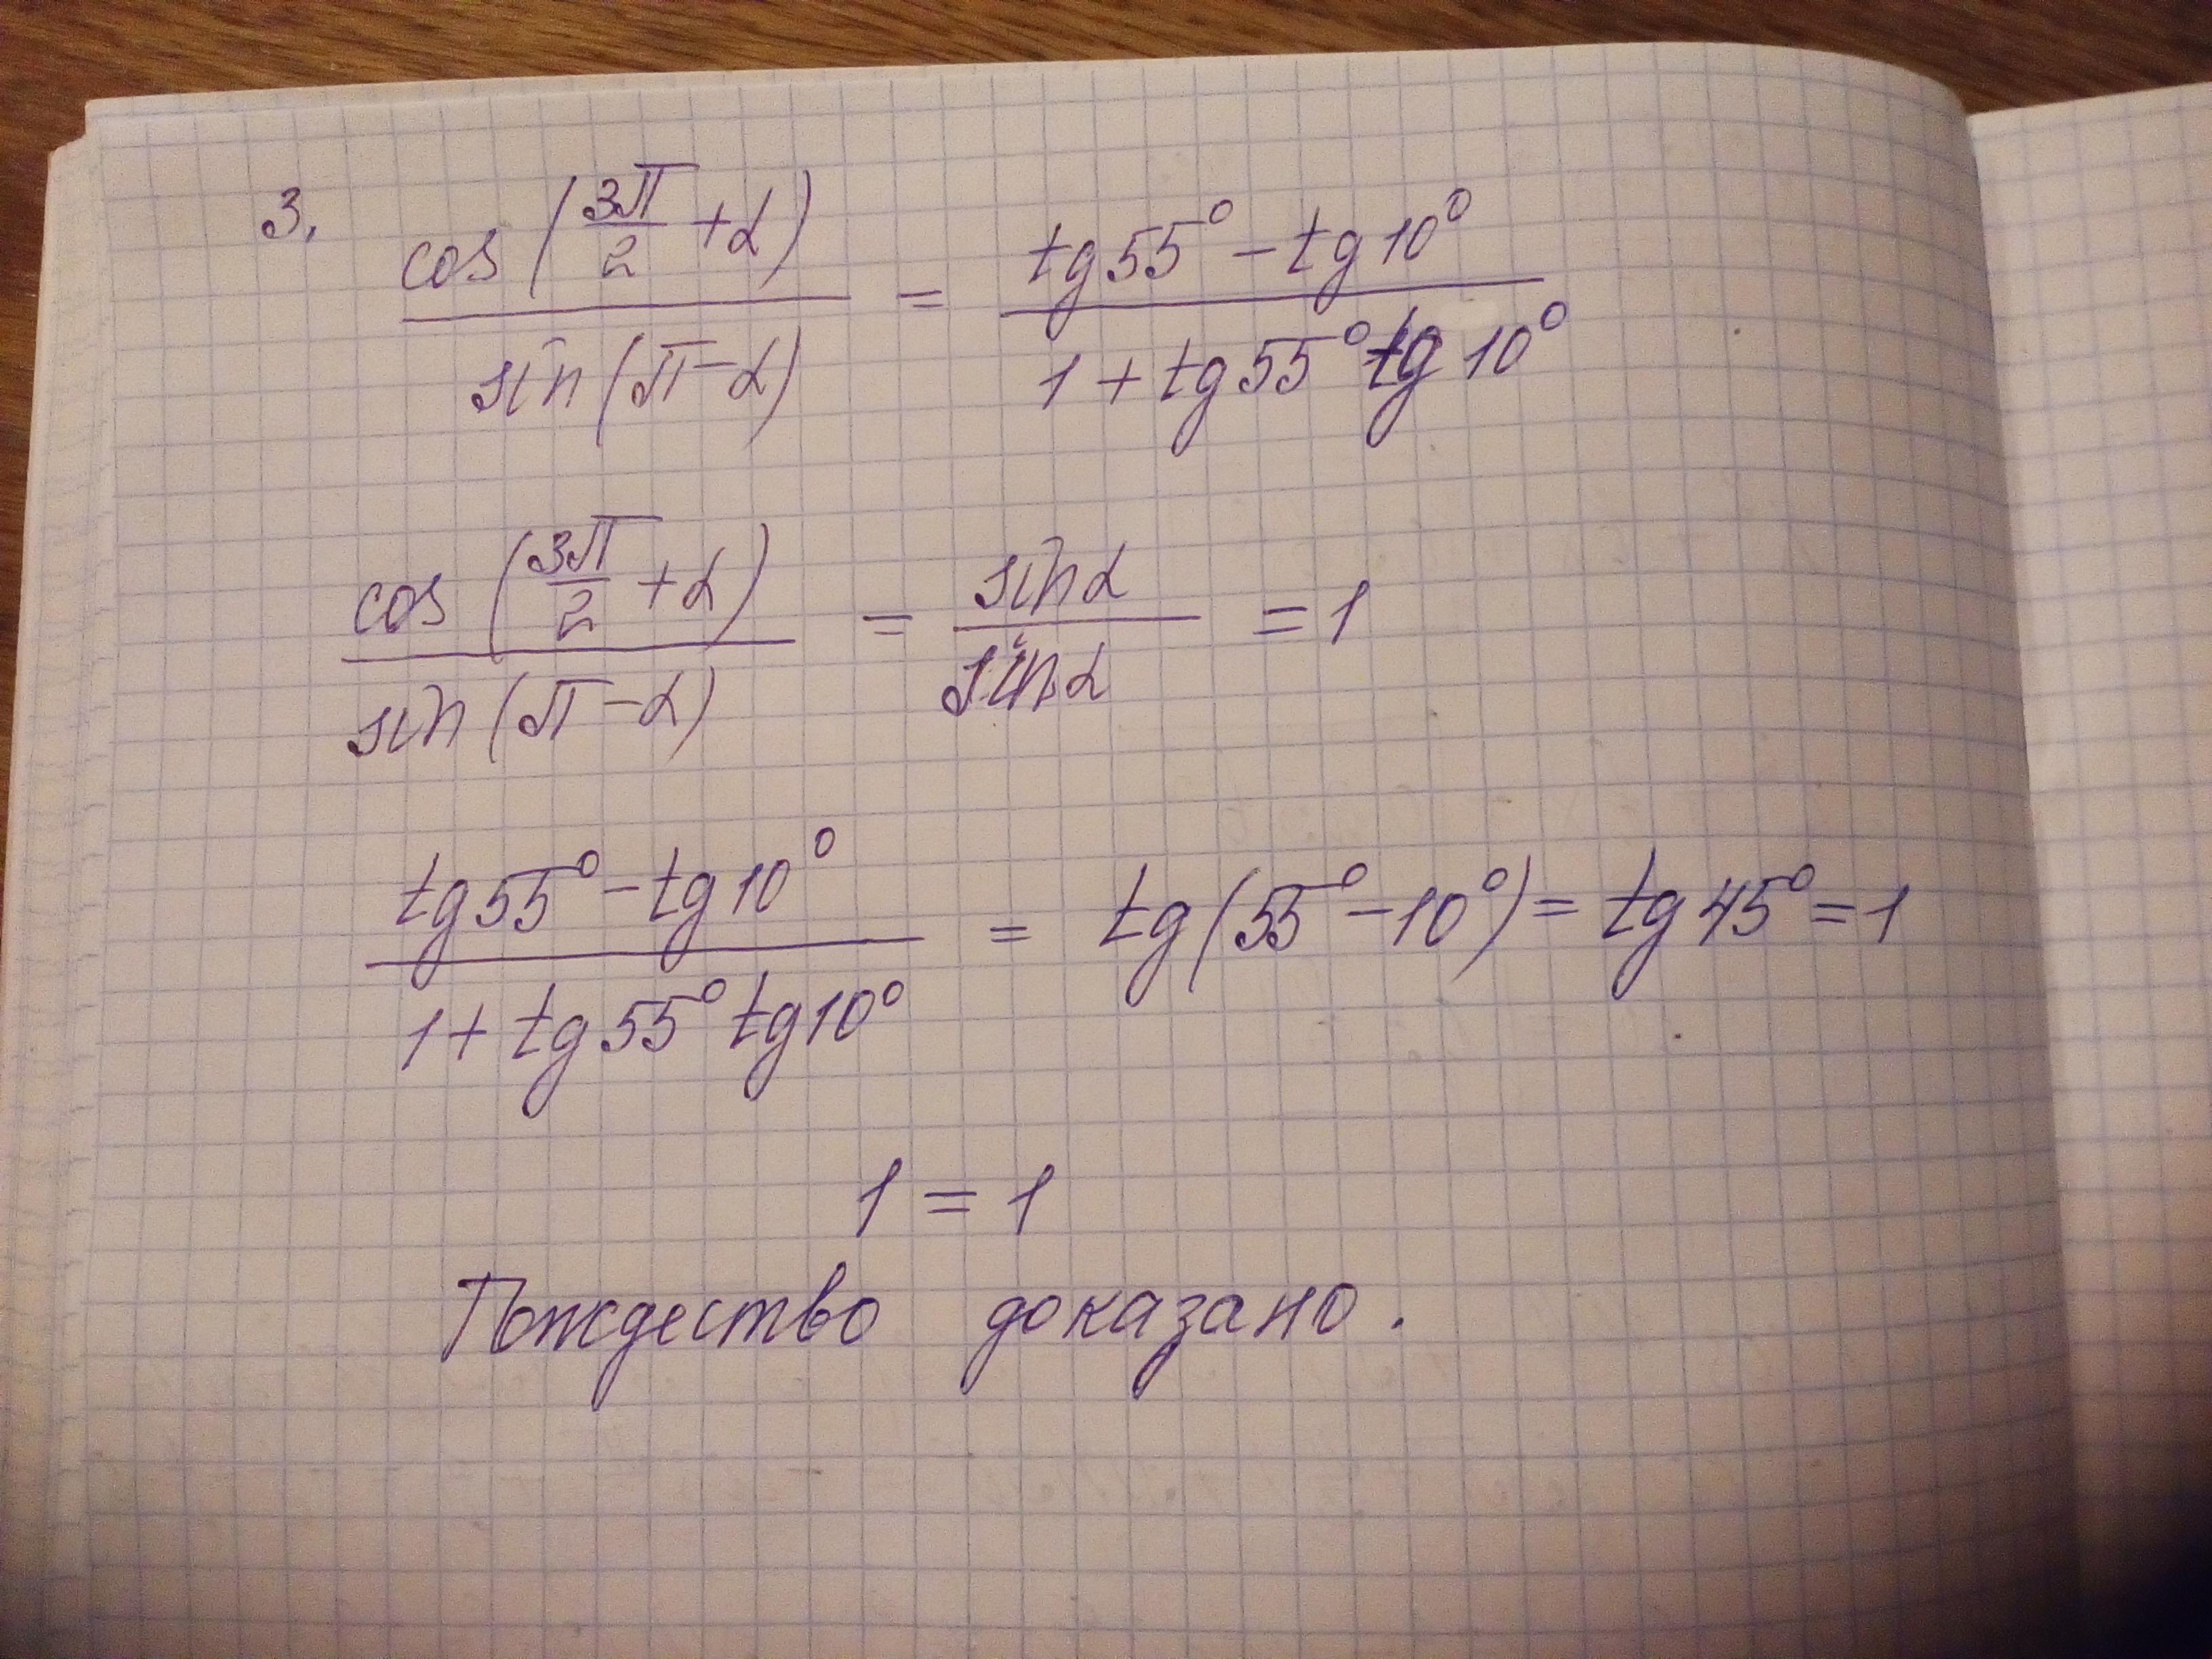 3. cos(3π/2 + α) / sin(π - α) = tg55° - tg10° / 1 + tg55° tg10°
cos(3π/2 + α) / sin(π - α) = sinα / sinα = 1
tg55° - tg10° / 1 + tg55° tg10° = tg(55° - 10°) = tg45° = 1
1 = 1
Тождество доказано.